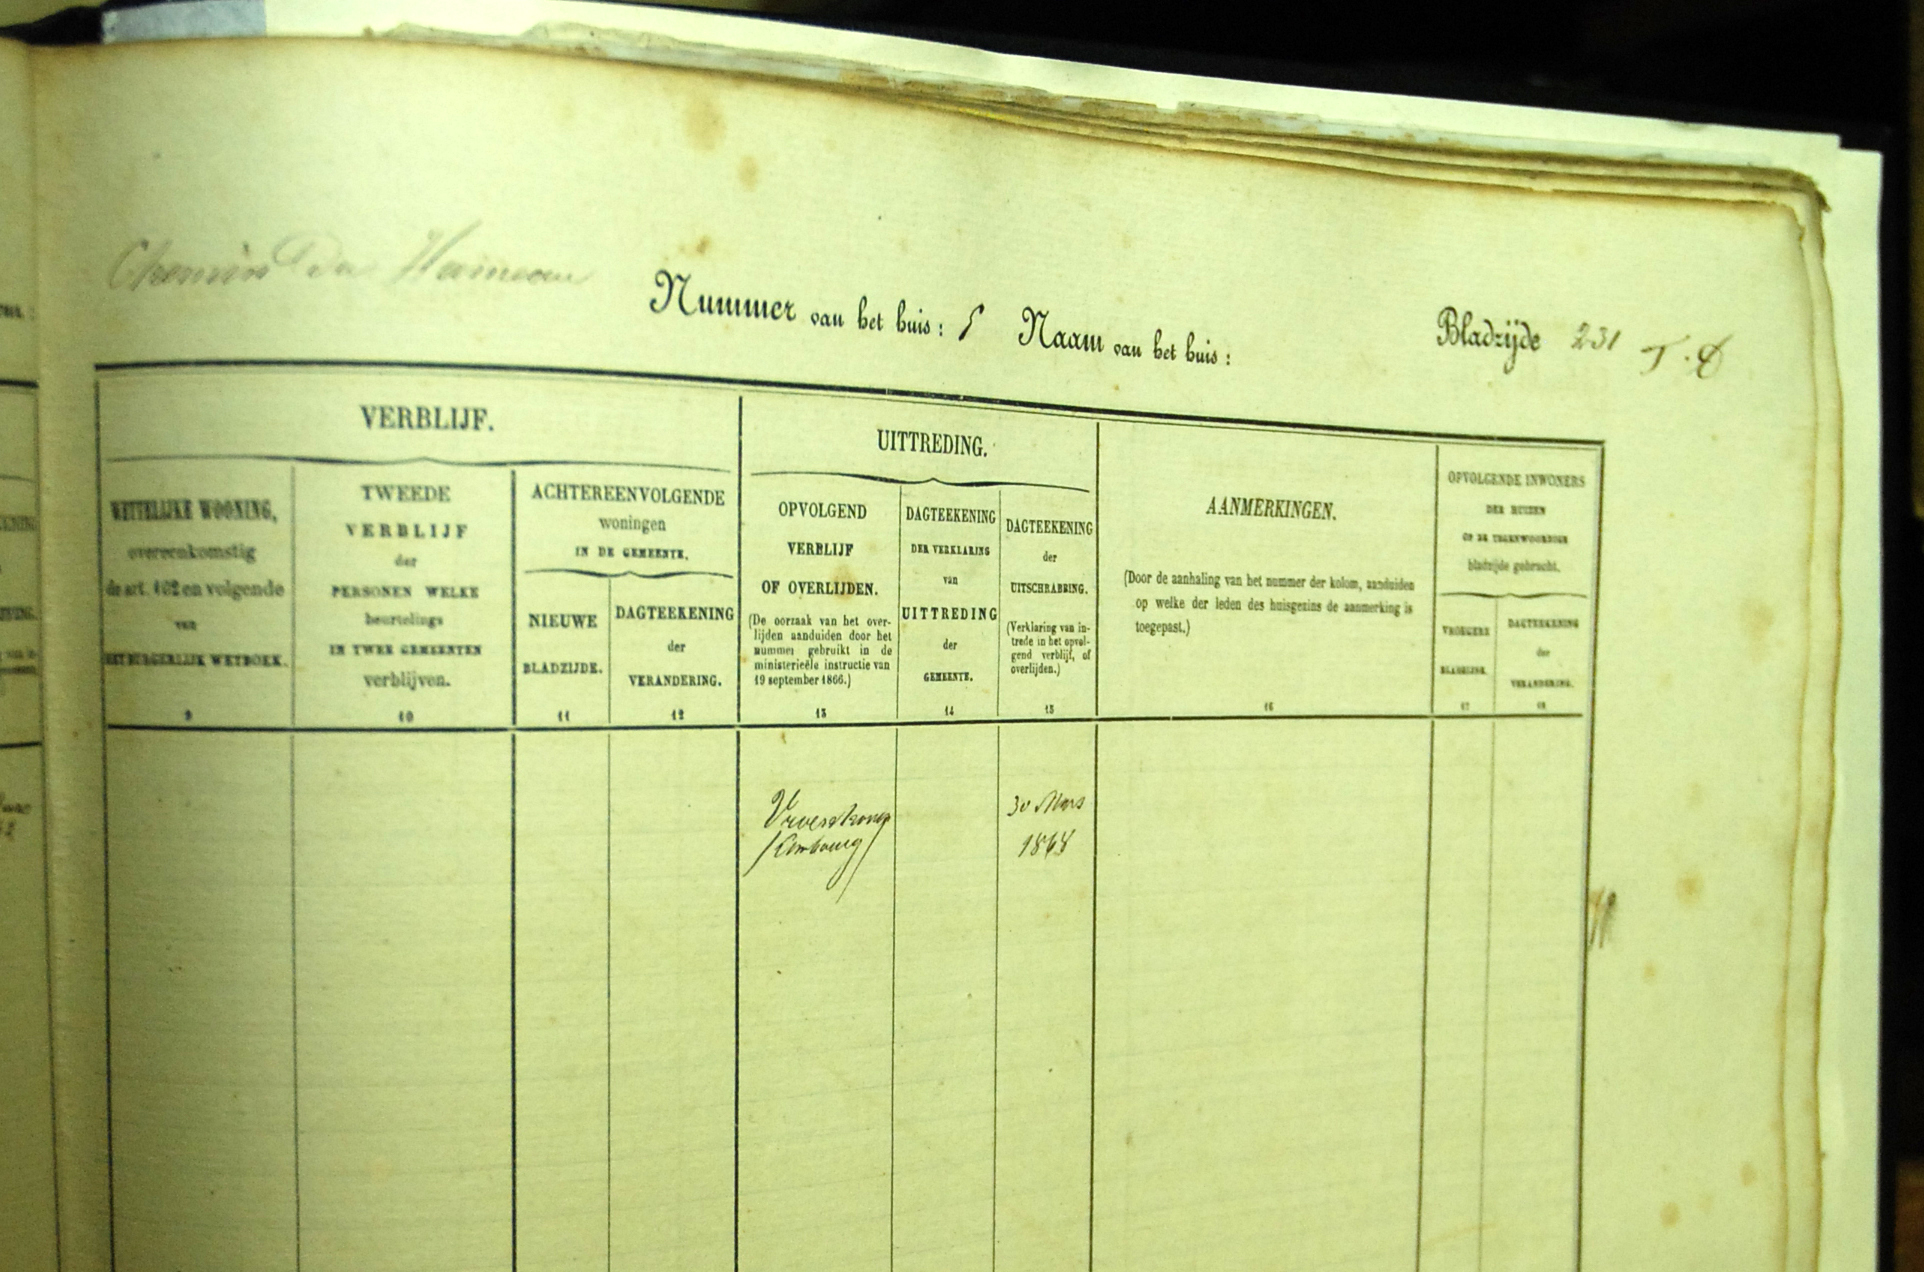 Chemin du Hameau
Nummer van het huis: 5 Naam van het huis:
Bladzijde 231 T. D
VERBLIJF.
WETTELIJKE WOONING,
overeenkomstig
de art. 102 en volgende
van
HET BURGERLIJK WETBOEK.
9
TWEEDE
VERBLIJF
der
PERSONEN WELKE
beurtelings
IN TWEE GEMEENTEN
verblijven.
10
ACHTEREENVOLGENDE
woningen
IN DE GEMEENTE.
NIEUWE
BLADZIJDE.
11
DAGTEEKENING
der
VERANDERING.
12
UITTREDING.
OPVOLGEND
VERBLIJF
OF OVERLIJDEN.
(De oorzaak van het over-
lijden aanduiden door het
nummer gebruikt in de
ministerieële instructie van
19 september 1866.)
13
DAGTEEKENING
DER VERKLARING
van
UITTREDING
der
GEMEENTE.
14
DAGTEEKENING
der
UITSCHRABBING.
(Verklaring van in-
trede in het opvol-
gend verblijf, of
overlijden.)
15
AANMERKINGEN.
(Door de aanhaling van het nummer der kolom, aanduiden
op welke der leden des huisgezins de aanmerking is
toegepast.)
16
OPVOLGENDE INWONERS
DER HUIZEN
OP DE TEGENWOORDIGE
bladzijde gebracht.
VROEGERE
BLADZIJDE.
17
DAGTEEKENING
der
VERANDERING.
18
30 Mars
1868